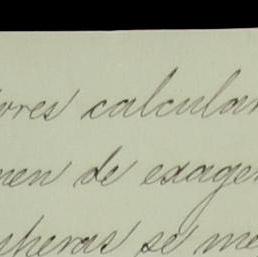 ores calcular
men de exager
spheras se me